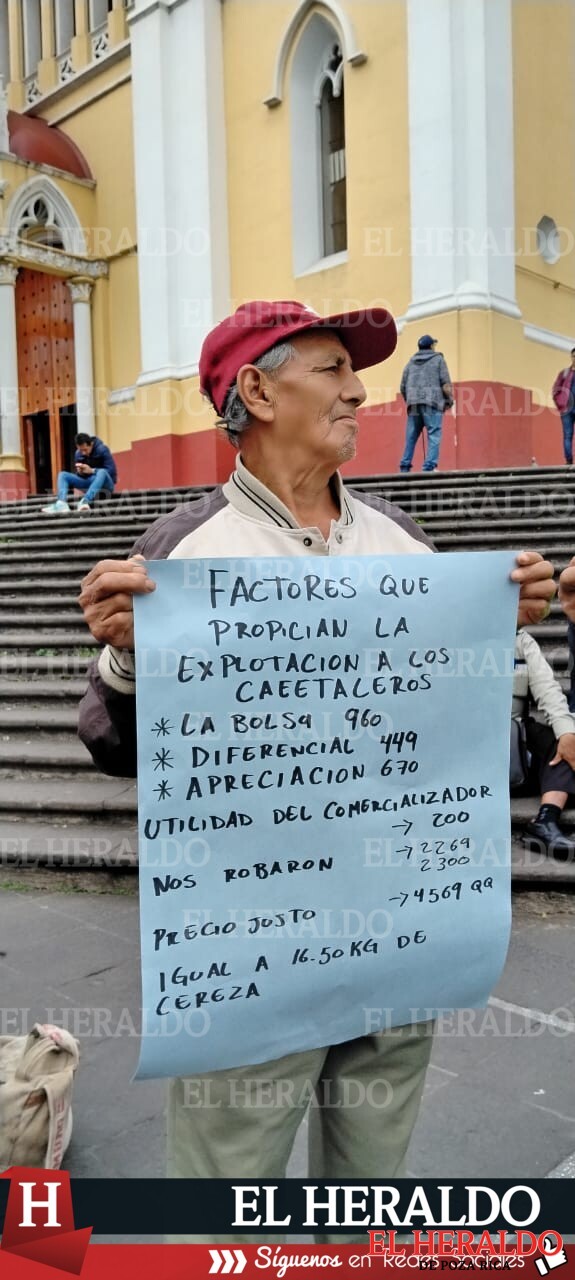 FACTORES QUE
PROPICIAN LA
EXPLOTACION A LOS
CAEETALEROS
* LA BOLSA 960
* DIFERENCIAL 449
* APRECIACION 670
UTILIDAD DEL COMERCIALIZADOR
→ 200
NOS ROBARON → 2269
2300
PRECIO JUSTO → 4569 QQ
IGUAL A 16.50 KG DE
CEREZA
H EL HERALDO
EL HERALDO
DE POZA RICA
Síguenos en Redes Sociales